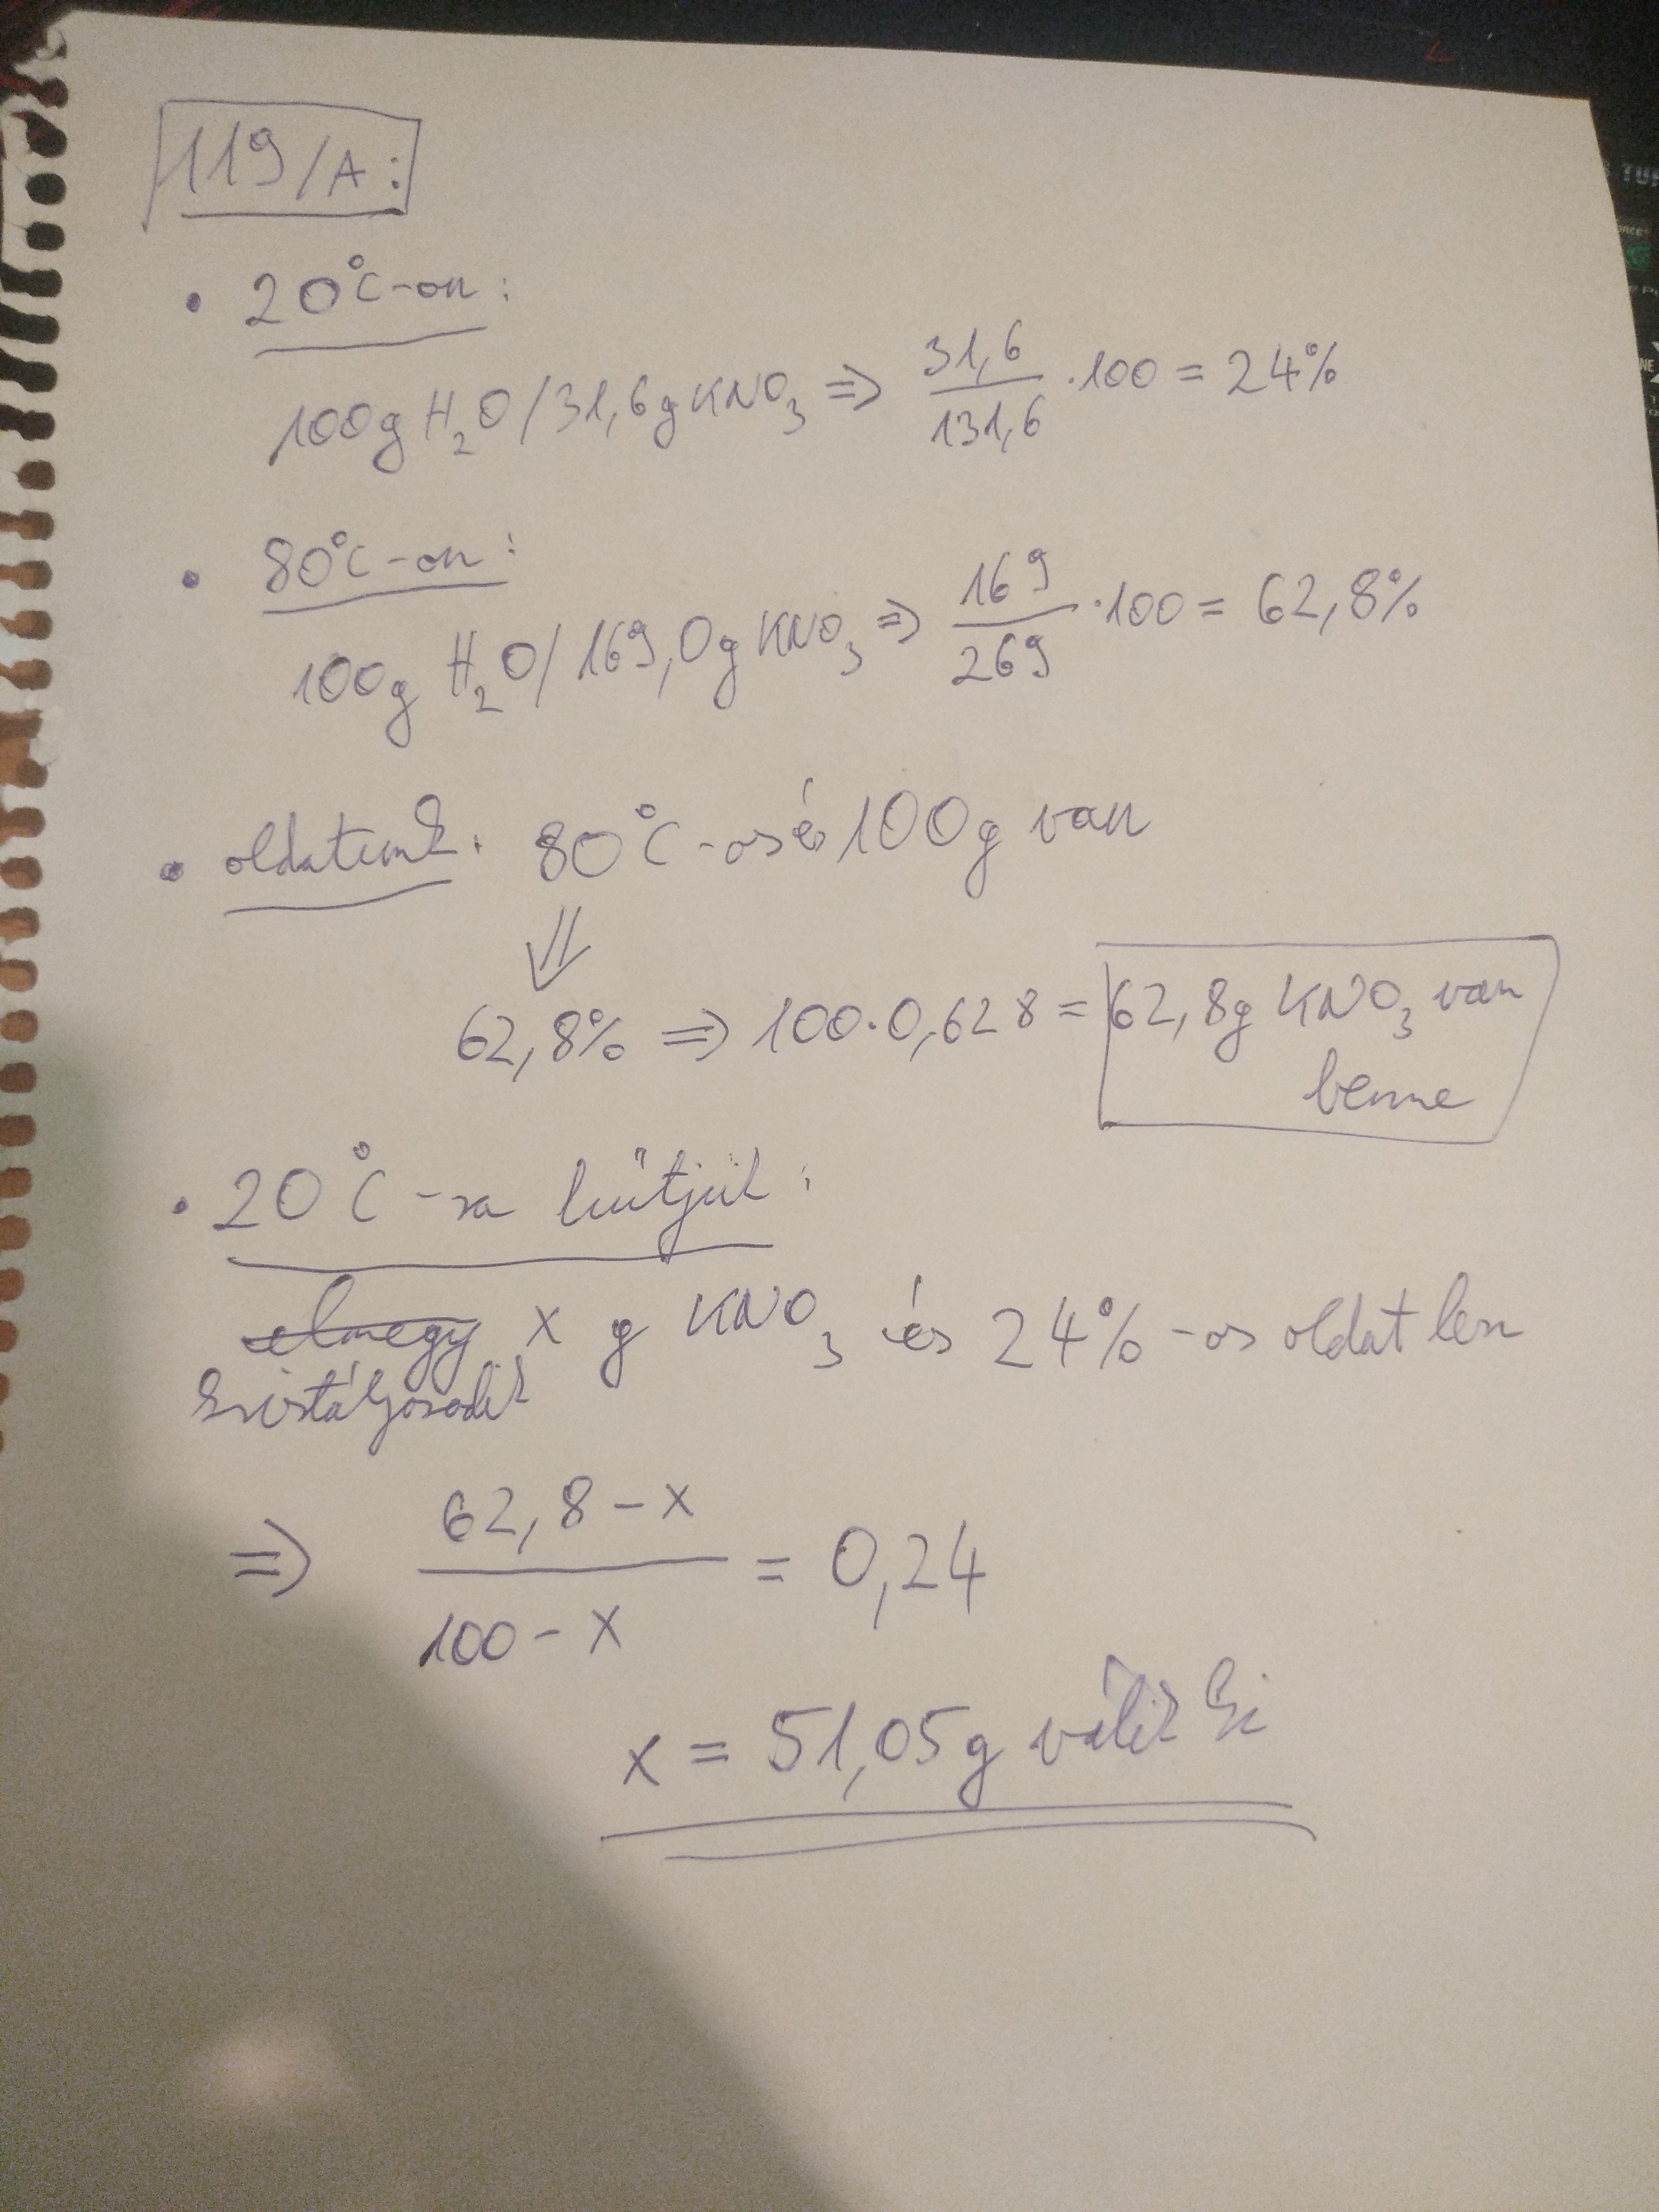 119/A:
• 20°C-on:
100g H₂O/31,6g KNO₃ ⇒ 31,6/131,6 · 100 = 24%
• 80°C-on:
100g H₂O/169,0g KNO₃ ⇒ 169/269 · 100 = 62,8%
• oldatunk: 80°C-os és 100g van
⇓
62,8% ⇒ 100·0,628 = 62,8g KNO₃ van
benne
• 20°C-ra hűtjük:
elmegy x g KNO₃ és 24%-os oldat lesz
kristályosodik
⇒ 62,8-x / 100-x = 0,24
x = 51,05g válik ki